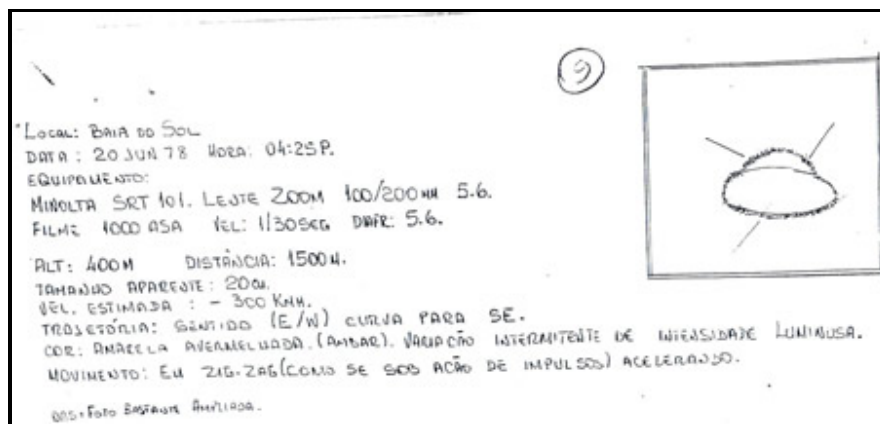 9
LOCAL: BAIA DO SOL
DATA: 20 JUN 78 HORA: 04:25P.
EQUIPAMENTO:
MINOLTA SRT 101. LENTE ZOOM 100/200MM 5.6.
FILME 1000 ASA VEL: 1/30SEG DIAFR: 5.6.
ALT: 400M DISTÂNCIA: 1500M.
TAMANHO APARENTE: 20
VEL. ESTIMADA: - 300 KMH.
TRAJETÓRIA: SENTIDO (E/W) CURVA PARA SE.
COR: AMARELA AVERMELHADA. (AMBAR). VARIAÇÃO INTERMITENTE DE INTENSIDADE LUMINOSA.
MOVIMENTO: EM ZIG-ZAG (COMO SE SOB AÇÃO DE IMPULSOS) ACELERANDO.
OBS: FOTO BASTANTE AMPLIADA.